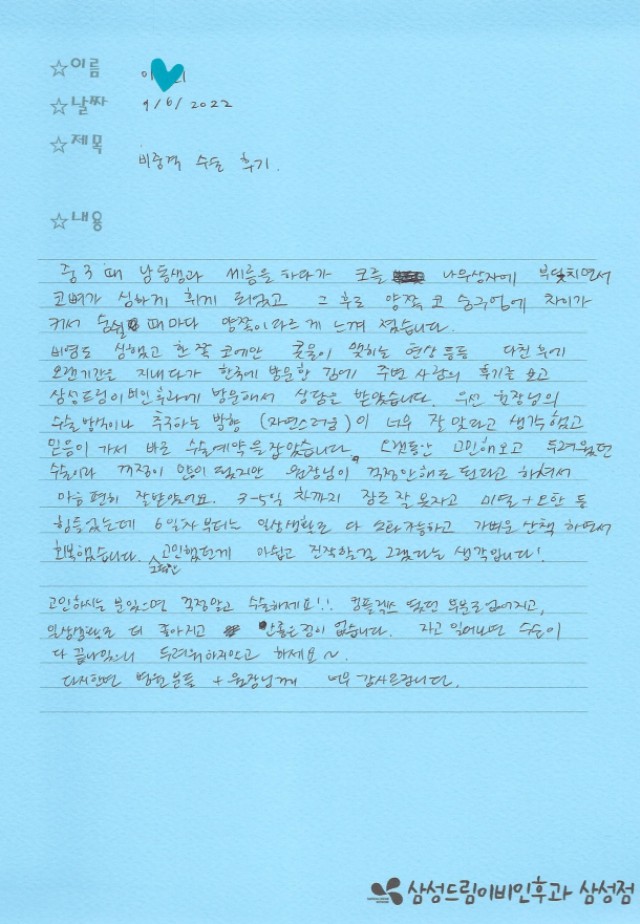 ☆이름 이 리
☆날짜 9/6/2022
☆제목
비중격 수술 후기.
☆내용
중3때 남동생과 씨름을 하다가 코를 나무상자에 부딪치면서
코뼈가 심하게 휘게 되었고 그 후로 양쪽 코 숨구멍에 차이가
커서 숨쉴 때마다 양쪽이 다르게 느껴졌습니다.
비염도 심했고 한쪽 코에만 콧물이 맺히는 현상 등등 다친 후에
오랜기간을 지내다가 한국에 방문한 김에 주변 사람의 후기를 보고
삼성드림이비인후과에 방문해서 상담을 받았습니다. 우선 원장님의
수술방식이나 추구하는 방향 (자연스러움)이 너무 잘 맞다고 생각했고
믿음이 가서 바로 수술예약을 잡았습니다. 오랫동안 고민해오고 두려웠던
수술이라 걱정이 많이 됐지만 원장님이 걱정안해도 된다고 하셔서
마음 편히 잘받았어요. 3-5일 차까지 잠을 잘 못자고 미열+오한 등
힘들었는데 6일차부터는 일상생활로 다 소화가능하고 가벼운 산책 하면서
회복했습니다. 고민했던게 아쉽고 진작할걸 그랬다는 생각입니다!
고민하시는 분있으면 걱정말고 수술하세요!! 컴플렉스 됐던 부분도 없어지고,
일상생활도 더 좋아지고 안좋은점이 없습니다. 자고 일어나면 수술이
다 끝나있으니 두려워하지말고 하세요~
다시한번 병원분들 + 원장님께 너무 감사드립니다.
삼성드림이비인후과 삼성점